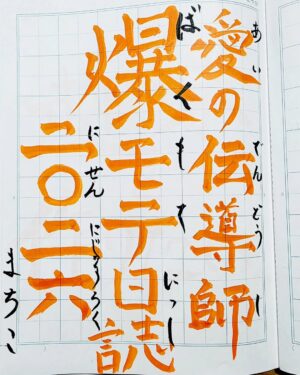 愛の伝導師
あい でんどう し
爆モテ日誌
ばく もて にっし
二〇二六
にせん にじゅうろく
まちこ